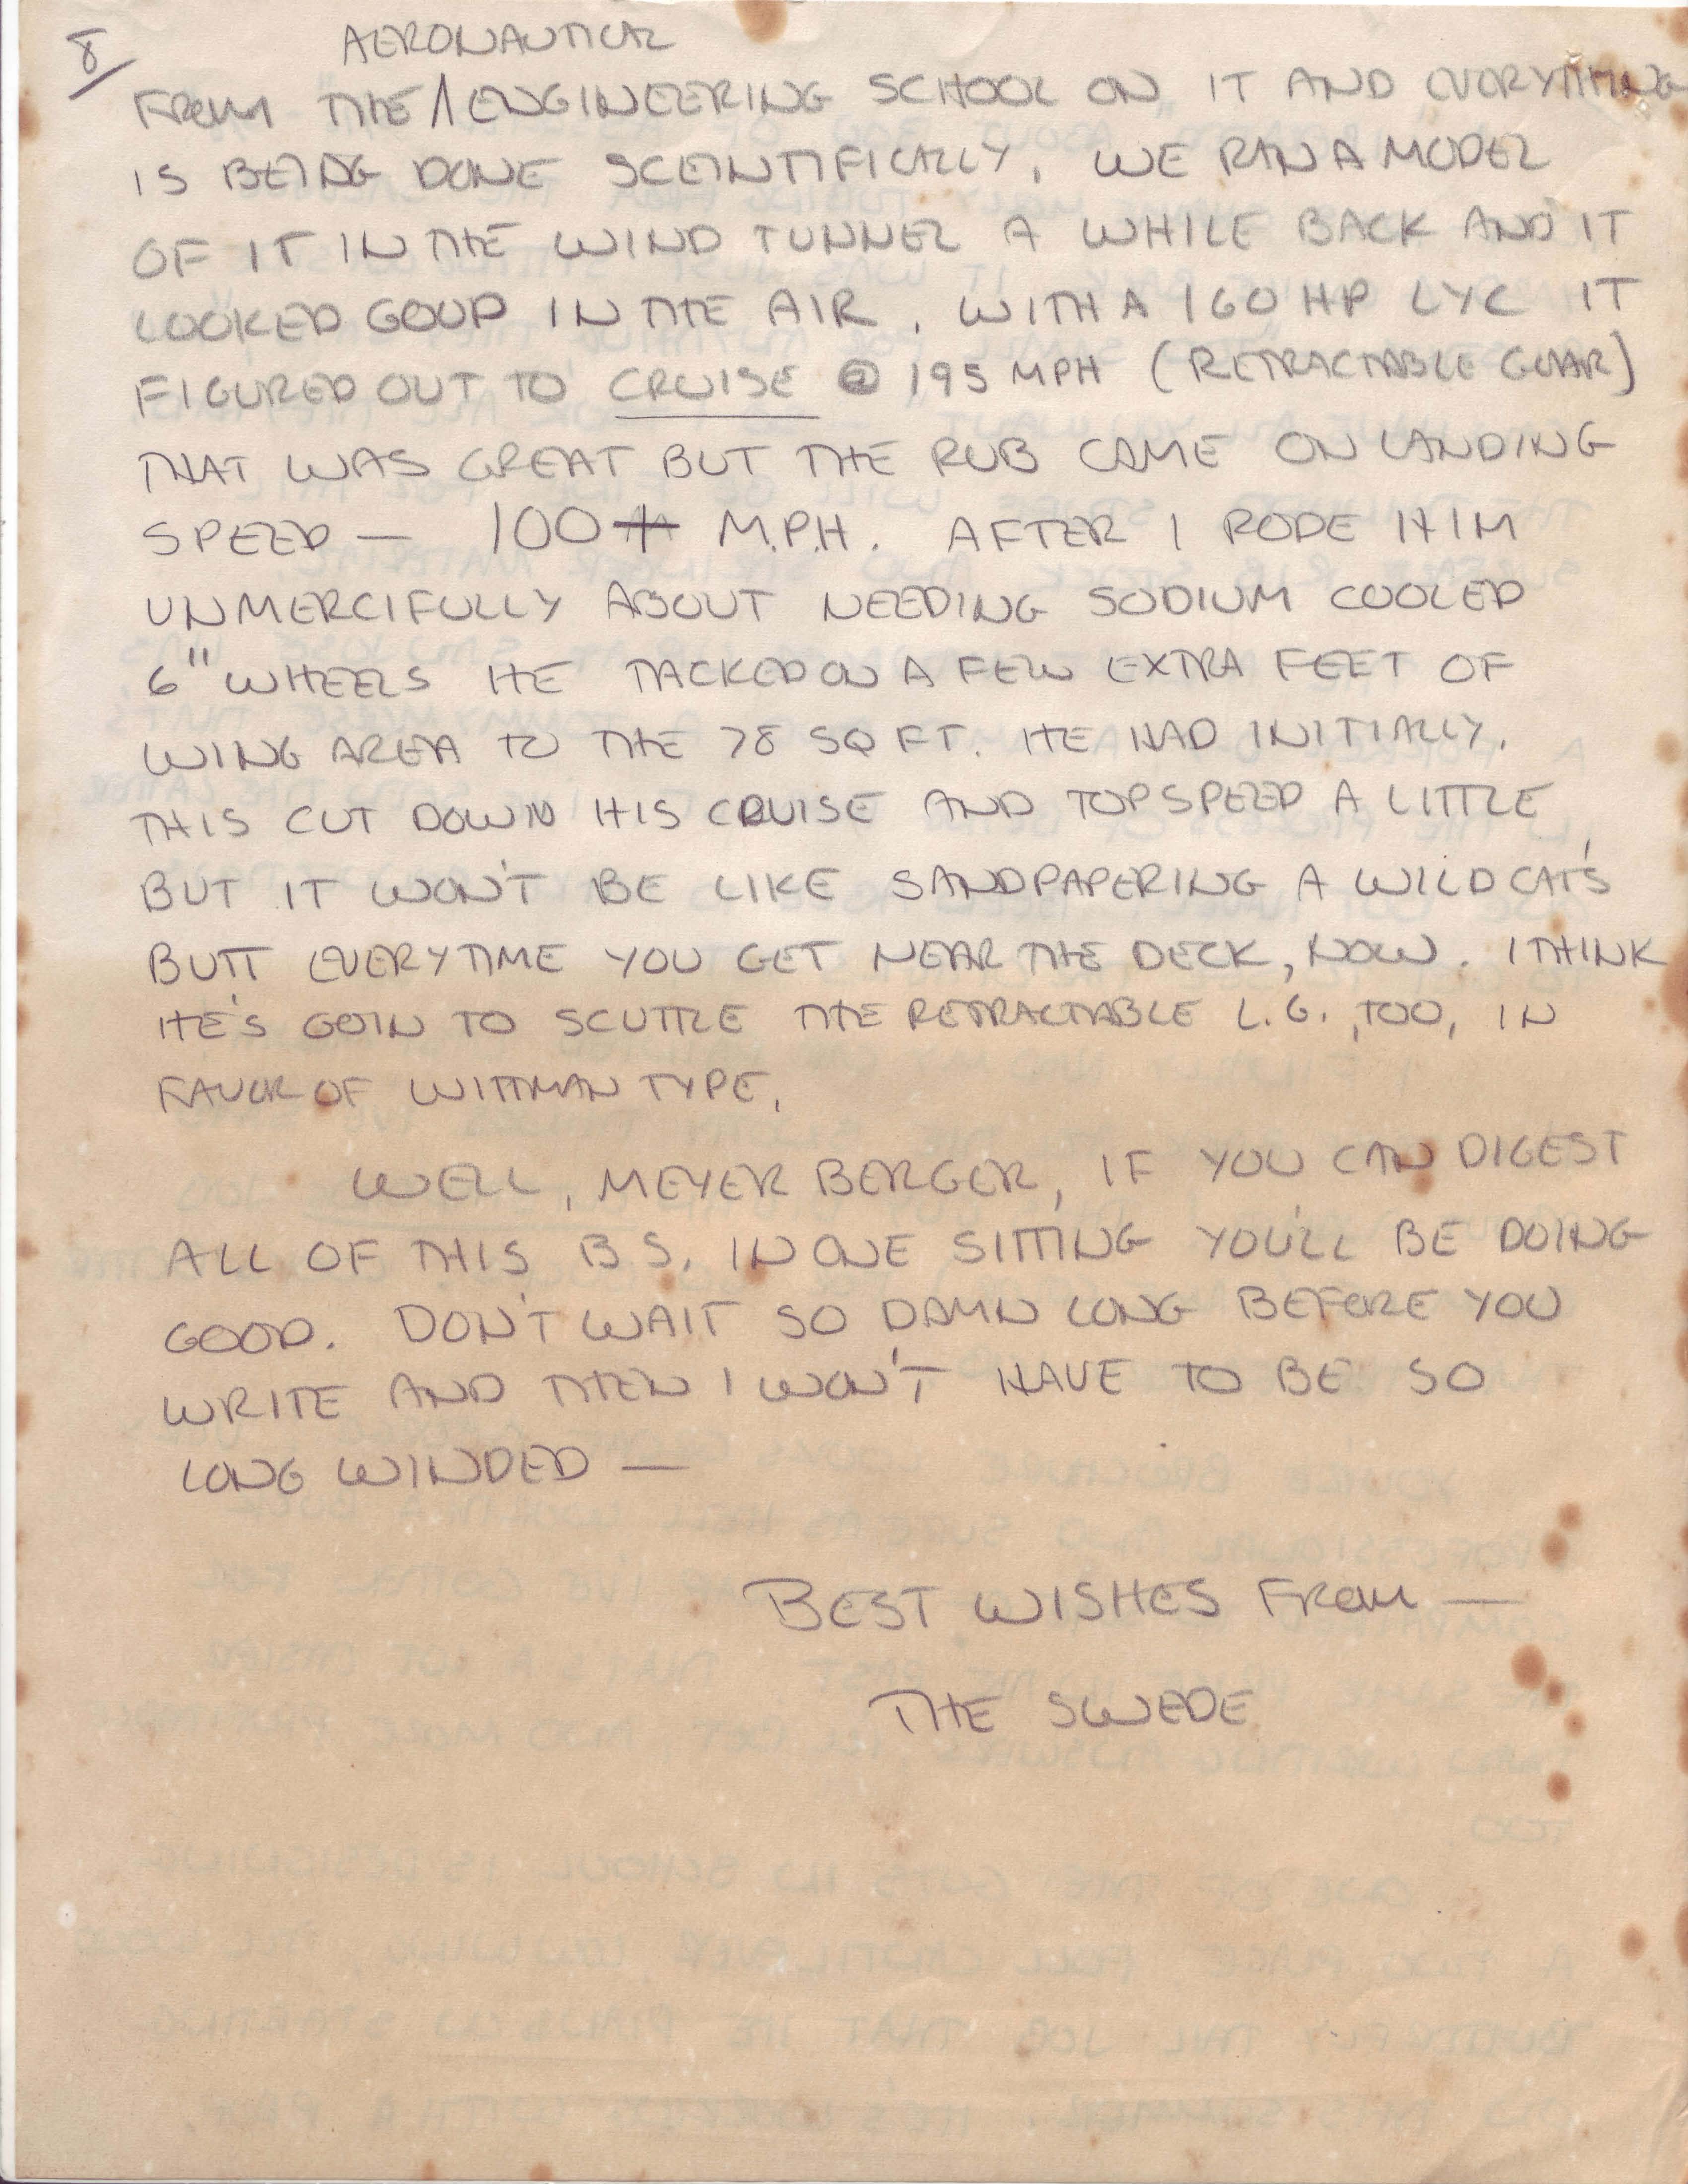 8/
AERONAUTICAL
FROM THE /\ ENGINEERING SCHOOL ON IT AND EVERYTHING
IS BEING DONE SCEINTIFICALLY. WE RAN A MODEL
OF IT IN THE WIND TUNNEL A WHILE BACK AND IT
LOOKED GOOD IN THE AIR. WITH A 160 HP LYC IT
FIGURED OUT TO CRUISE @ 195 MPH (RETRACTABLE GEAR)
THAT WAS GREAT BUT THE RUB CAME ON LANDING
SPEED — 100+ M.P.H. AFTER I RODE HIM
UNMERCIFULLY ABOUT NEEDING SODIUM COOLED
6" WHEELS HE TACKED ON A FEW EXTRA FEET OF
WING AREA TO THE 78 SQ FT. HE HAD INITIALLY.
THIS CUT DOWN HIS CRUISE AND TOP SPEED A LITTLE
BUT IT WON'T BE LIKE SANDPAPERING A WILDCAT'S
BUTT EVERYTIME YOU GET NEAR THE DECK, NOW. I THINK
HE'S GOIN TO SCUTTLE THE RETRACTABLE L.G., TOO, IN
FAVOR OF WITTMAN TYPE.
WELL, MEYER BERGER, IF YOU CAN DIGEST
ALL OF THIS B.S. IN ONE SITTING YOU'LL BE DOING
GOOD. DON'T WAIT SO DAMN LONG BEFORE YOU
WRITE AND THEN I WON'T HAVE TO BE SO
LONG WINDED —
BEST WISHES FROM —
THE SWEDE